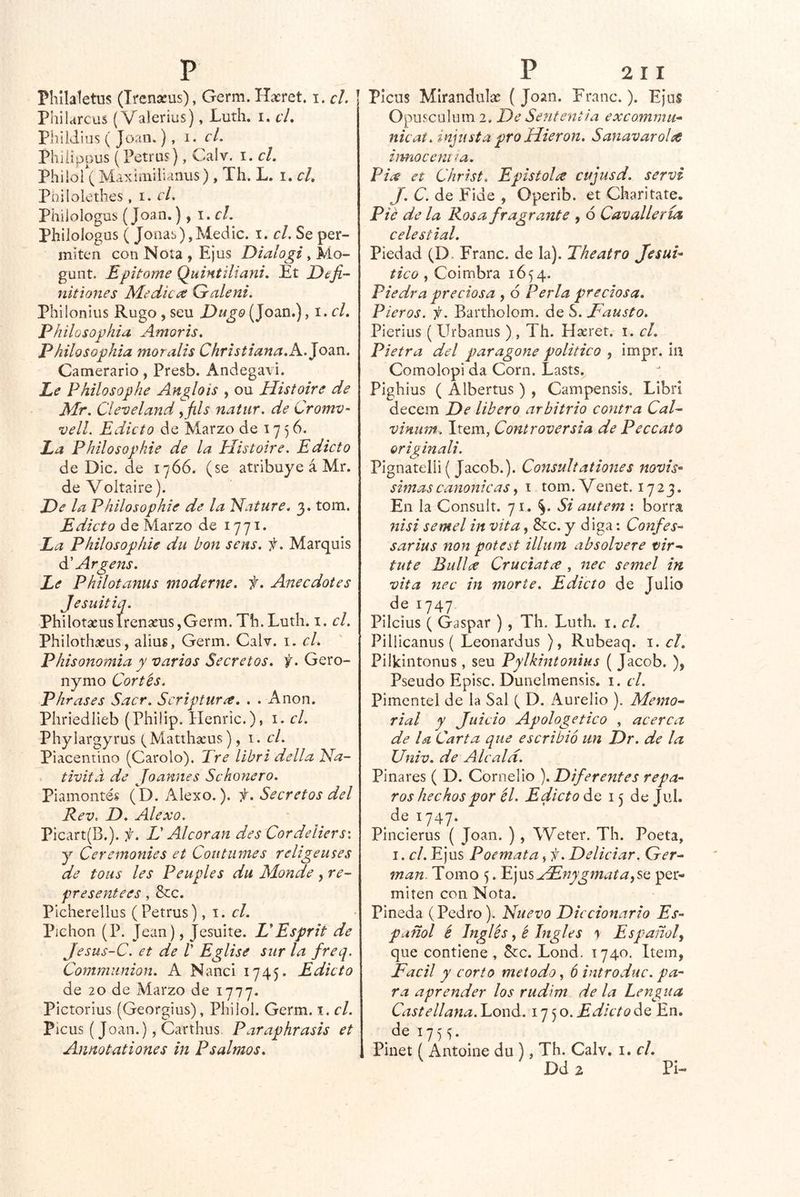 P
Philaletus (Irenæus), Germ. Hæret. 1. cl.
Philarcus (Valerius), Luth. 1. cl.
Phildius ( Joan. ), 1. cl.
Philippus (Petrus), Calv. 1. cl.
Philol ( Maximilianus), Th. L. 1. cl.
Philolethes, 1. cl.
Philologus (Joan.), 1. cl.
Philologus ( Jonas), Medic. 1. cl. Se per-
miten con Nota, Ejus Dialogi, Mo-
gunt. Epitome Quintiliani. Et Defi-
nitiones Medicæ Galeni.
Philonius Rugo, seu Dugo (Joan.), 1. cl.
Philosophia Amoris.
Philosophia moralis Christiana. A. Joan.
Camerario, Presb. Andegavi.
Le Philosophe Anglois, ou Histoire de
Mr. Cleveland, fils natur. de Cromv-
vell. Edicto de Marzo de 1756.
La Philosophie de la Histoire. Edicto
de Dic. de 1766. (se atribuye á Mr.
de Voltaire).
De la Philosophie de la Nature. 3. tom.
Edicto de Marzo de 1771.
La Philosophie du bon sens. ꝟ. Marquis
d'Argens.
Le Philotanus moderne. ꝟ. Anecdotes
Jesuitiq.
Philotæus Irenæus, Germ. Th. Luth. 1. cl.
Philothæus, alius, Germ. Calv. 1. cl.
Phisonomia y varios Secretos. ꝟ. Gero-
nymo Cortés.
Phrases Sacr. Scripturæ. . . Anon.
Phriedlieb (Philip. Henric.), 1. cl.
Phylargyrus (Matthæus), 1. cl.
Piacentino (Carolo). Tre libri della Na-
tività de Joannes Schonero.
Piamontés (D. Alexo.). ꝟ. Secretos del
Rev. D. Alexo.
Picart(B.). ꝟ. L'Alcoran des Cordeliers:
y Ceremonies et Coutumes religeuses
de tous les Peuples du Monde, re-
presentees, &c.
Picherellus (Petrus), 1. cl.
Pichon (P. Jean), Jesuite. L'Esprit de
Jesus-C. et de l'Eglise sur la freq.
Communion. A Nanci 1745. Edicto
de 20 de Marzo de 1777.
Pictorius (Georgius), Philol. Germ. 1. cl.
Picus (Joan.), Carthus. Paraphrasis et
Annotationes in Psalmos.
P 211
Picus Mirandulæ ( Joan. Franc. ). Ejus
Opusculum 2. De Sententia excommu-
nicat. injusta pro Hieron. Sanavarolæ
innocentia.
Piæ et Christ. Epistolæ cujusd. servi
J. C. de Fide, Operib. et Charitate.
Pie de la Rosa fragrante, ó Cavallería
celestial.
Piedad (D. Franc. de la). Theatro Jesui-
tico, Coimbra 1654.
Piedra preciosa, ó Perla preciosa.
Pieros. ꝟ. Bartholom. de S. Fausto.
Pierius ( Urbanus ), Th. Hæret. 1. cl.
Pietra del paragone politico, impr. in
Comolopi da Corn. Lasts.
Pighius ( Albertus ), Campensis. Libri
decem De libero arbitrio contra Cal-
vinum. Item, Controversia de Peccato
originali.
Pignatelli ( Jacob.). Consultationes novis-
simas canonicas, 1 tom. Venet. 1723.
En la Consult. 71. §. Si autem: borra
nisi semel in vita, &c. y diga: Confes-
sarius non potest illum absolvere vir-
tute Bullæ Cruciatæ, nec semel in
vita nec in morte. Edicto de Julio
de 1747
Pilcius ( Gaspar ), Th. Luth. 1. cl.
Pillicanus ( Leonardus ), Rubeaq. 1. cl.
Pilkintonus, seu Pylkintonius ( Jacob. ),
Pseudo Episc. Dunelmensis. 1. cl.
Pimentel de la Sal ( D. Aurelio ). Memo-
rial y Juicio Apologetico, acerca
de la Carta que escribió un Dr. de la
Univ. de Alcalá.
Pinares ( D. Cornelio ). Diferentes repa-
ros hechos por él. Edicto de 15 de Jul.
de 1747.
Pincierus ( Joan. ), Weter. Th. Poeta,
1. cl. Ejus Poemata, ꝟ. Deliciar. Ger-
man. Tomo 5. Ejus Ænygmata, se per-
miten con Nota.
Pineda (Pedro ). Nuevo Diccionario Es-
pañol é Inglés, é Ingles y Español,
que contiene, &c. Lond. 1740. Item,
Facil y corto metodo, ó introduc. pa-
ra aprender los rudim de la Lengua
Castellana. Lond. 1750. Edicto de En.
de 1755.
Pinet ( Antoine du ), Th. Calv. 1. cl.
Dd 2 Pi-